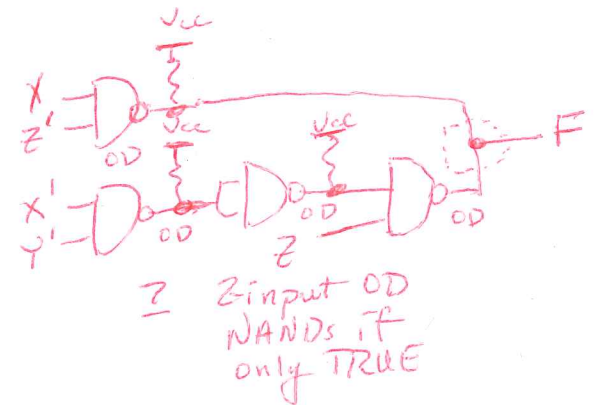 Vcc
X
Z'
OD
Vcc
Vcc
F
X'
Y'
OD
OD
Z
OD
7 2-input OD
NANDs if
only TRUE